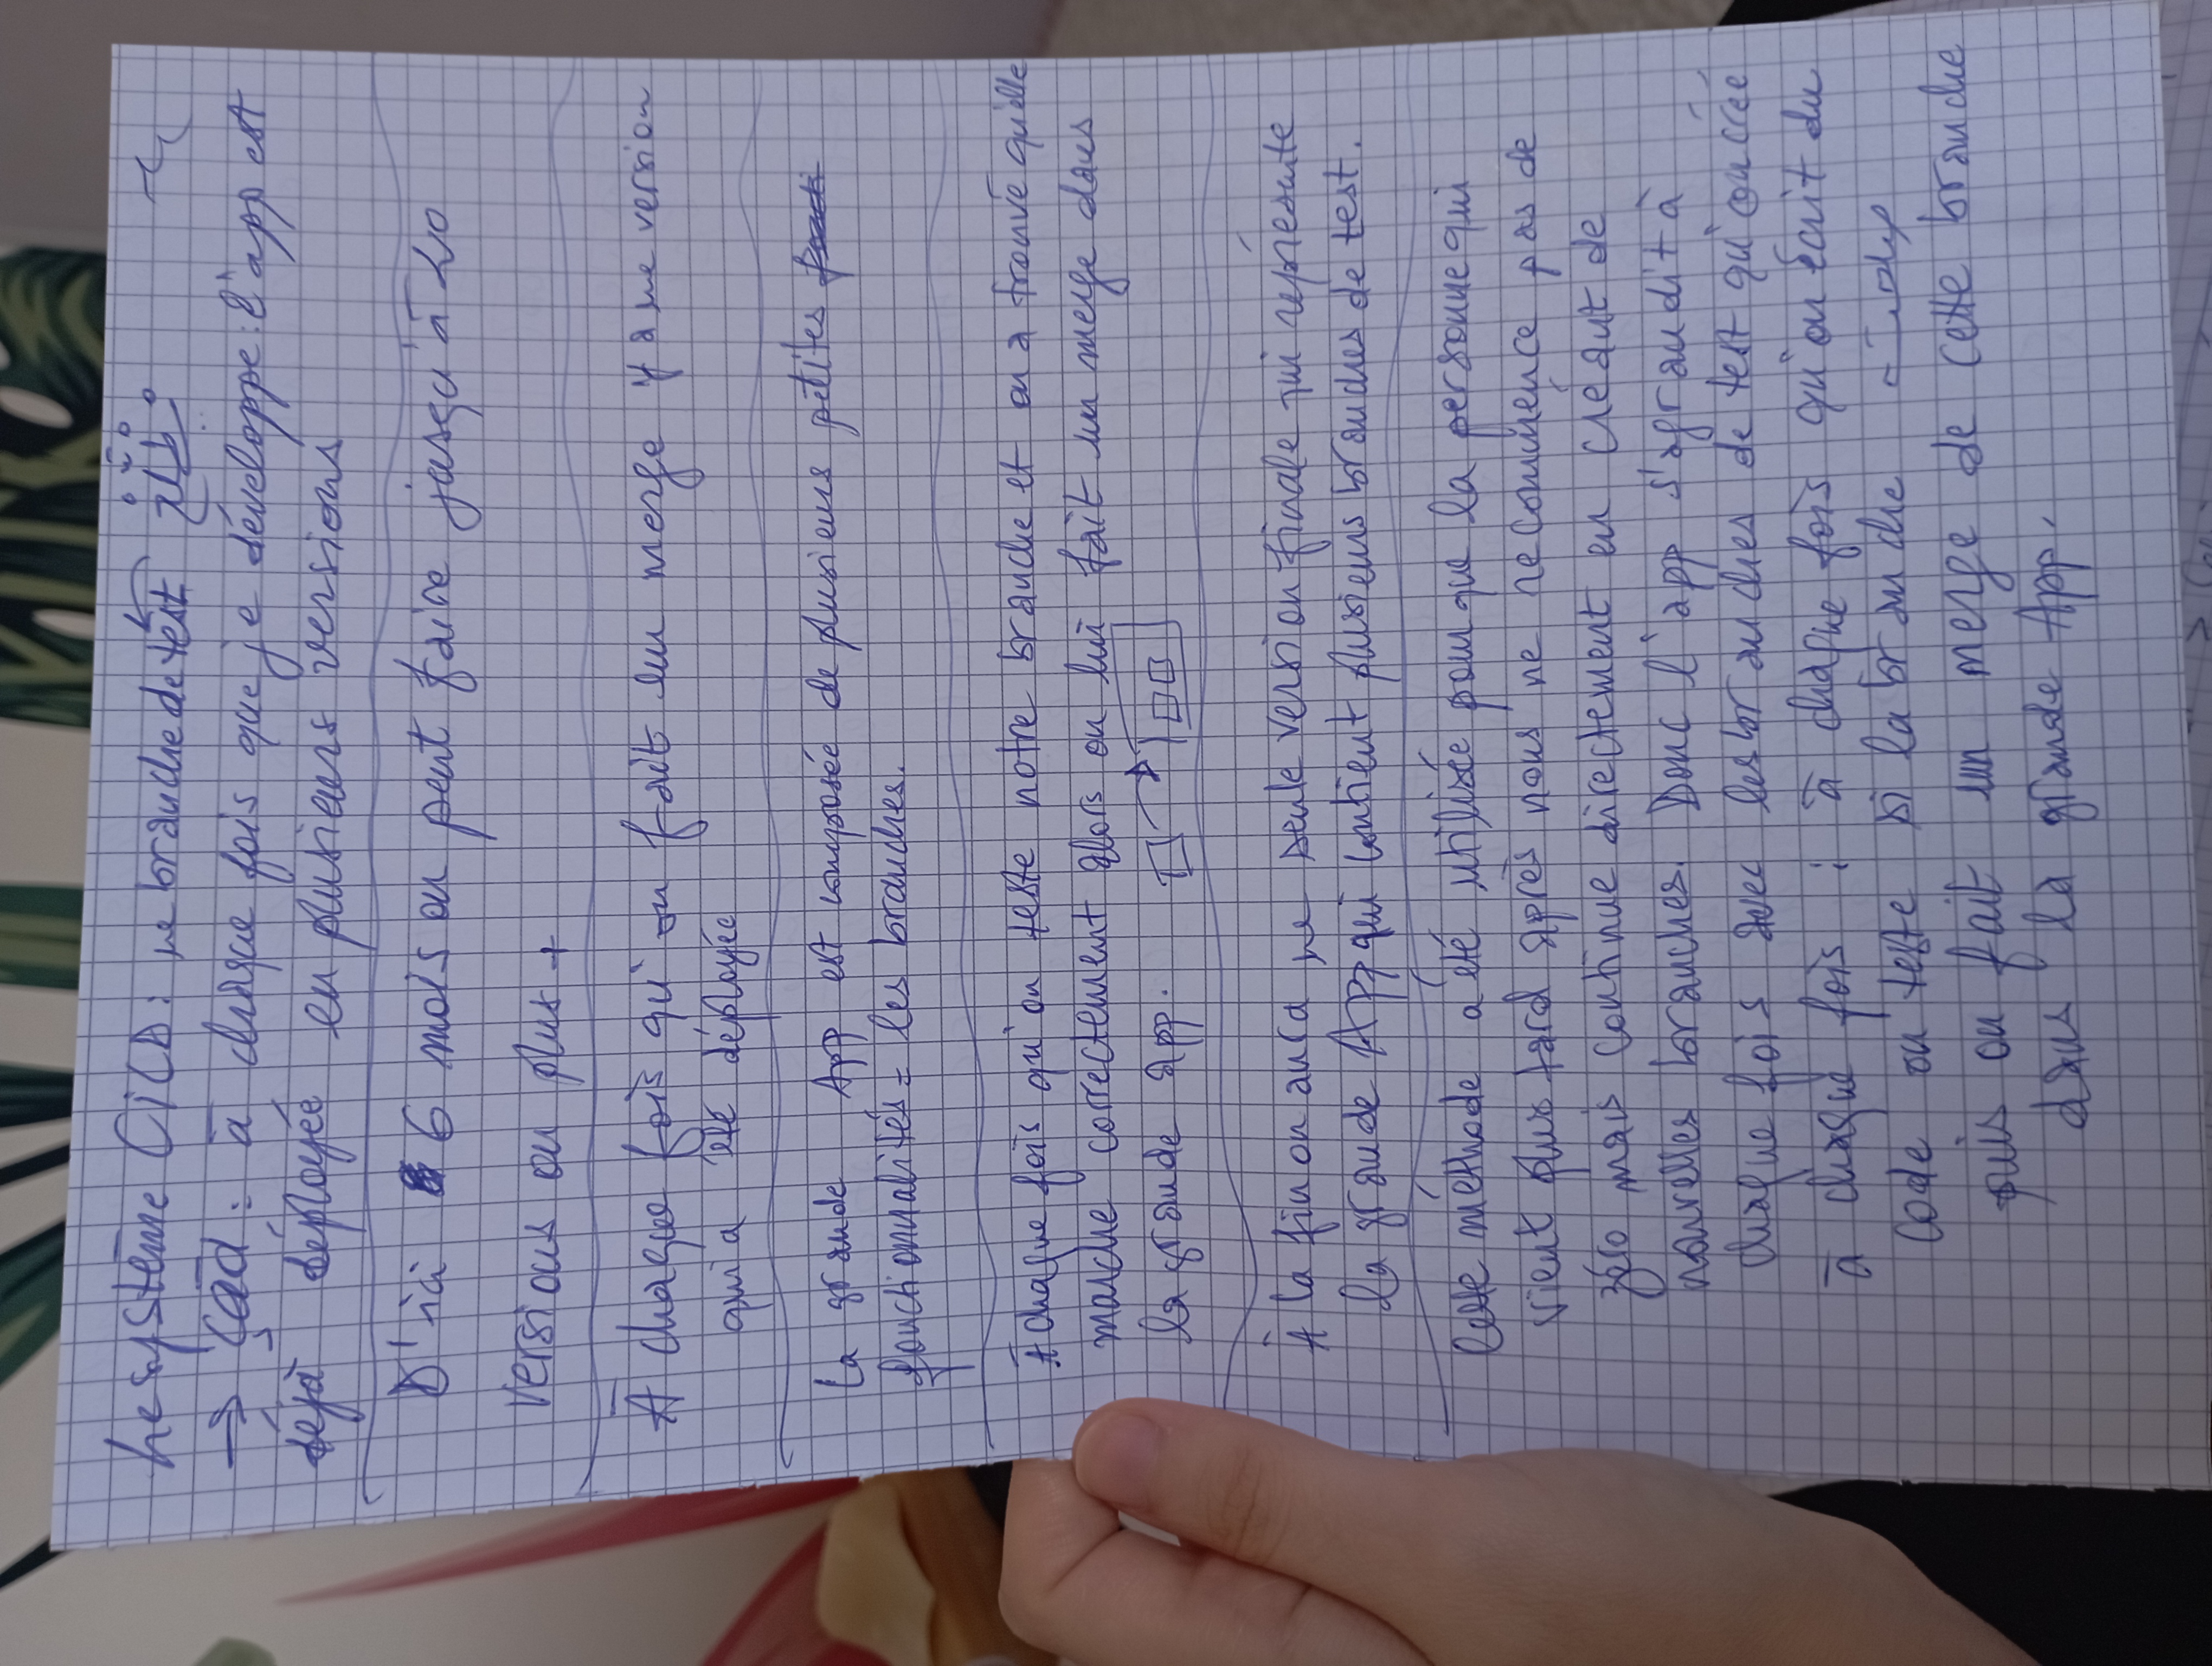 Le système CiCD : une branche de test
→ Çàd : à chaque fois que je développe : l'app est
déjà déployée en plusieurs versions
D'ici 6 mois on peut faire jusqu'à 20
versions ou plus +
À chaque fois qu'on fait un merge y a une version
qui a été déployée
La grande App est composée de plusieurs petites
fonctionnalités = les branches.
À chaque fois qu'on teste notre branche et on a trouvé qu'elle
marche correctement alors on lui fait un merge dans
la grande app.
À la fin on aura une seule version finale qui représente
la grande App qui contient plusieurs branches de test.
Cette méthode a été utilisée pour que la personne qui
vient plus tard après nous ne recommence pas de
zéro mais continue directement en créant de
nouvelles branches. Donc l'app s'agrandit à
chaque fois avec les branches de test qu'on créé
à chaque fois : à chaque fois qu'on écrit du
code on teste si la branche
puis on fait un merge de cette branche
dans la grande App.